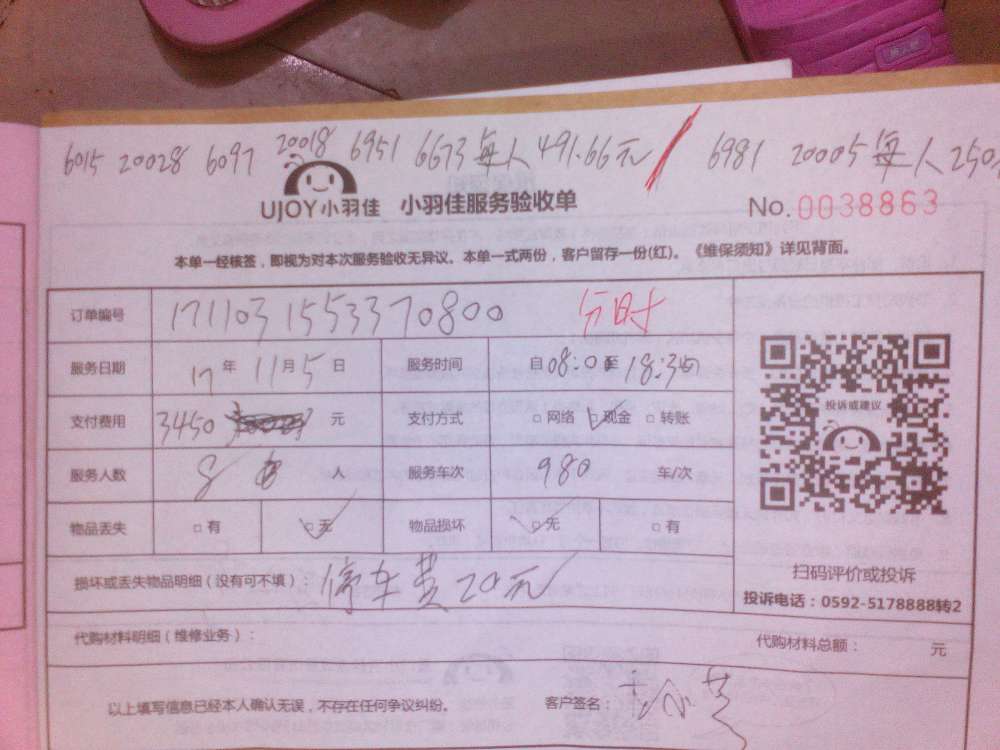 6015 20028 6097 20018 6951 6673 每人 491.66元 / 6981 20005 每人 250
UJOY小羽佳 小羽佳服务验收单 No. 0038863
本单一经核签，即视为对本次服务验收无异议。本单一式两份，客户留存一份(红)。《维保须知》详见背面。
订单编号 171103155370800 分时
服务日期 17年11月5日 服务时间 自08:0至18:35
支付费用 3450 元 支付方式 □网络 □现金 □转账
服务人数 8 人 服务车次 980 车/次
物品丢失 □有 □无 物品损坏 □无 □有
投诉或建议
扫码评价或投诉
投诉电话：0592-5178888转2
损坏或丢失物品明细（没有可不填）： 停车费20元
代购材料明细（维修业务）： 代购材料总额： 元
以上填写信息已经本人确认无误，不存在任何争议纠纷。 客户签名：